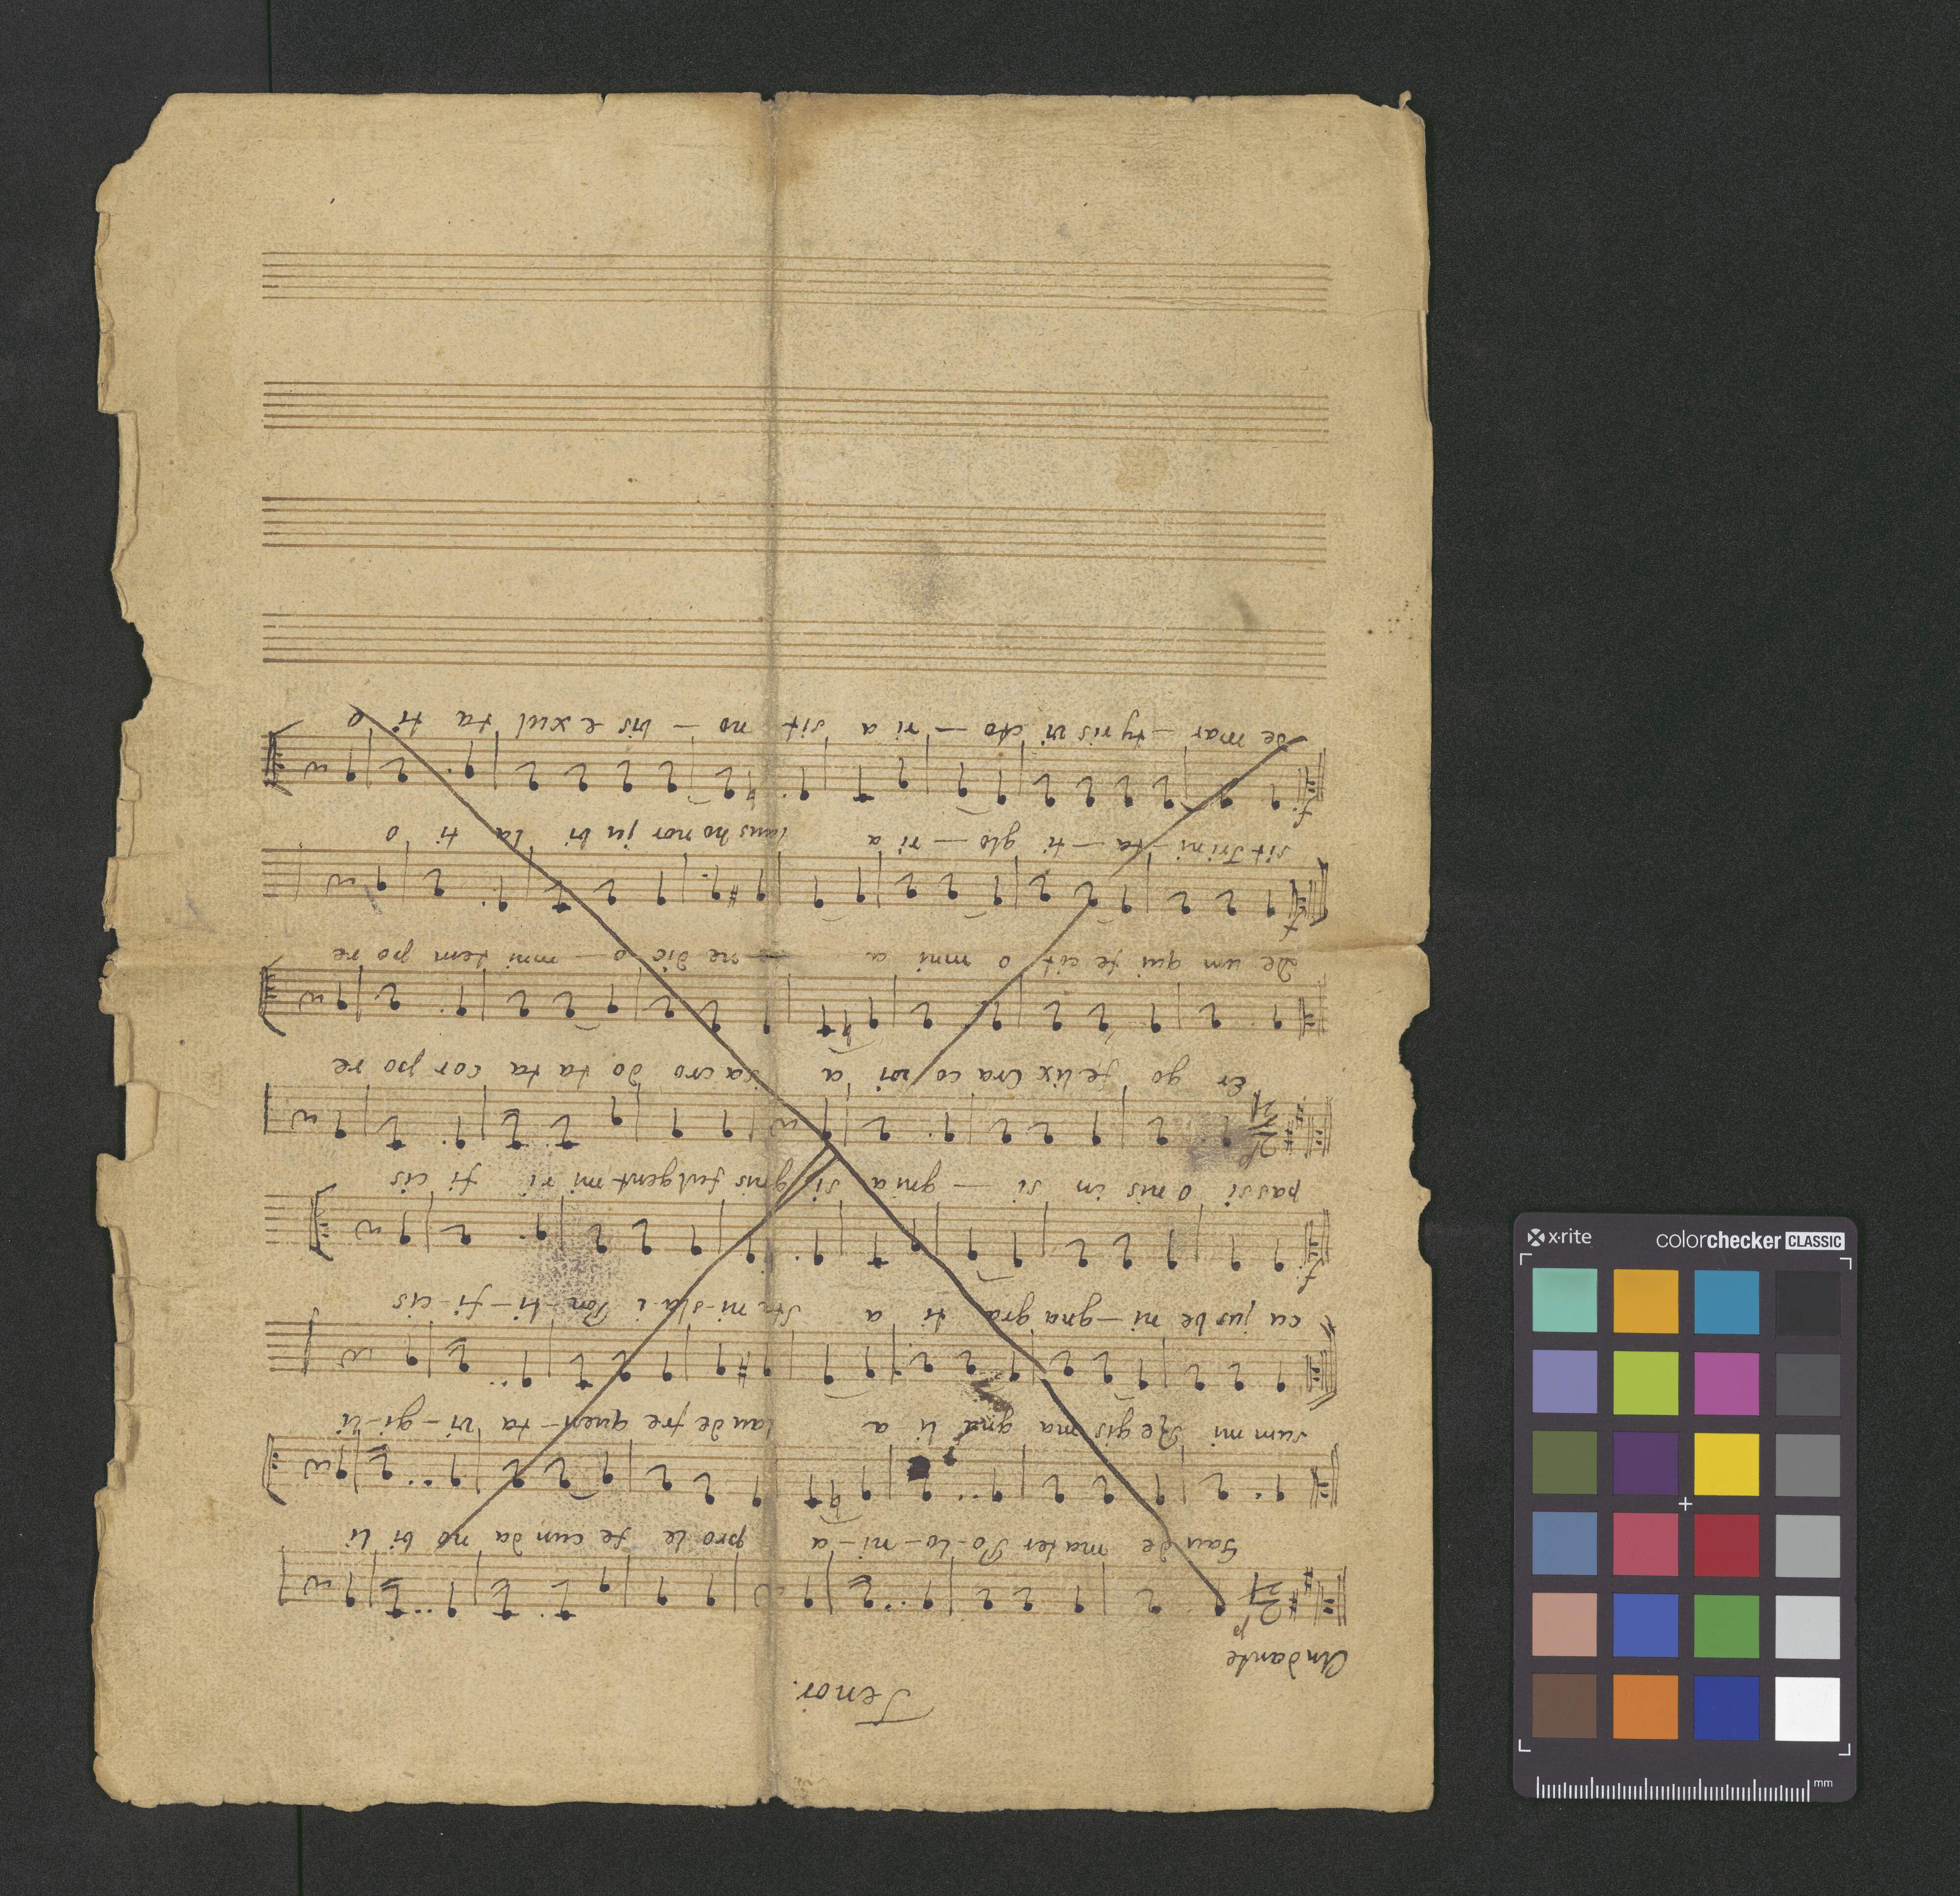 Tenor.
Andante
p
Gau de mater Po-lo-ni-a prole fe cun da no bi li
sum mi Regis ma gna li a laude fre quen-ta vi-gi-li
cu jus be ni-gna gra ti a Sta ni-sla-i Pon-ti-fi-cis
f
passi o nis in si — gni a si gnis fulgent mi ri fi cis
p
Er go felix Cra co vi a sacro do ta ta cor po re
De um qui fe cit o mni a be ne dic o — mni tem po re
f
sit Trini-ta-ti glo-ri a laus ho nor ju bi la ti o
f
de mar-tyris vi cto-ri a sit no-bis exul ta ti o
x·rite
colorchecker CLASSIC
mm